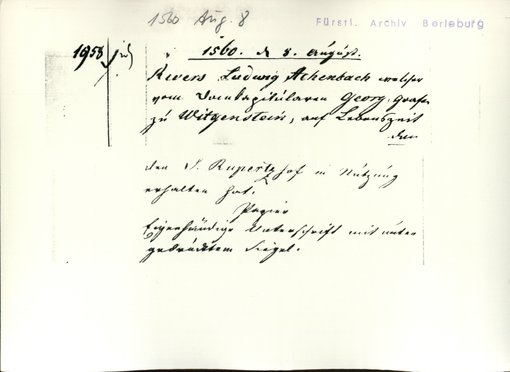 1560 Aug. 8
Fürstl. Archiv Berleburg
1958
1560. d. 8. August.
Revers Ludwig Achenbach welcher
vom Domkapitularen Georg, Grafen
zu Witgenstein, auf Lebenszeit
den
den S. Rupertzhof in Nutzung
erhalten hat.
Papier
Eigenhändige Unterschrift mit unter
gedrücktem Siegel.